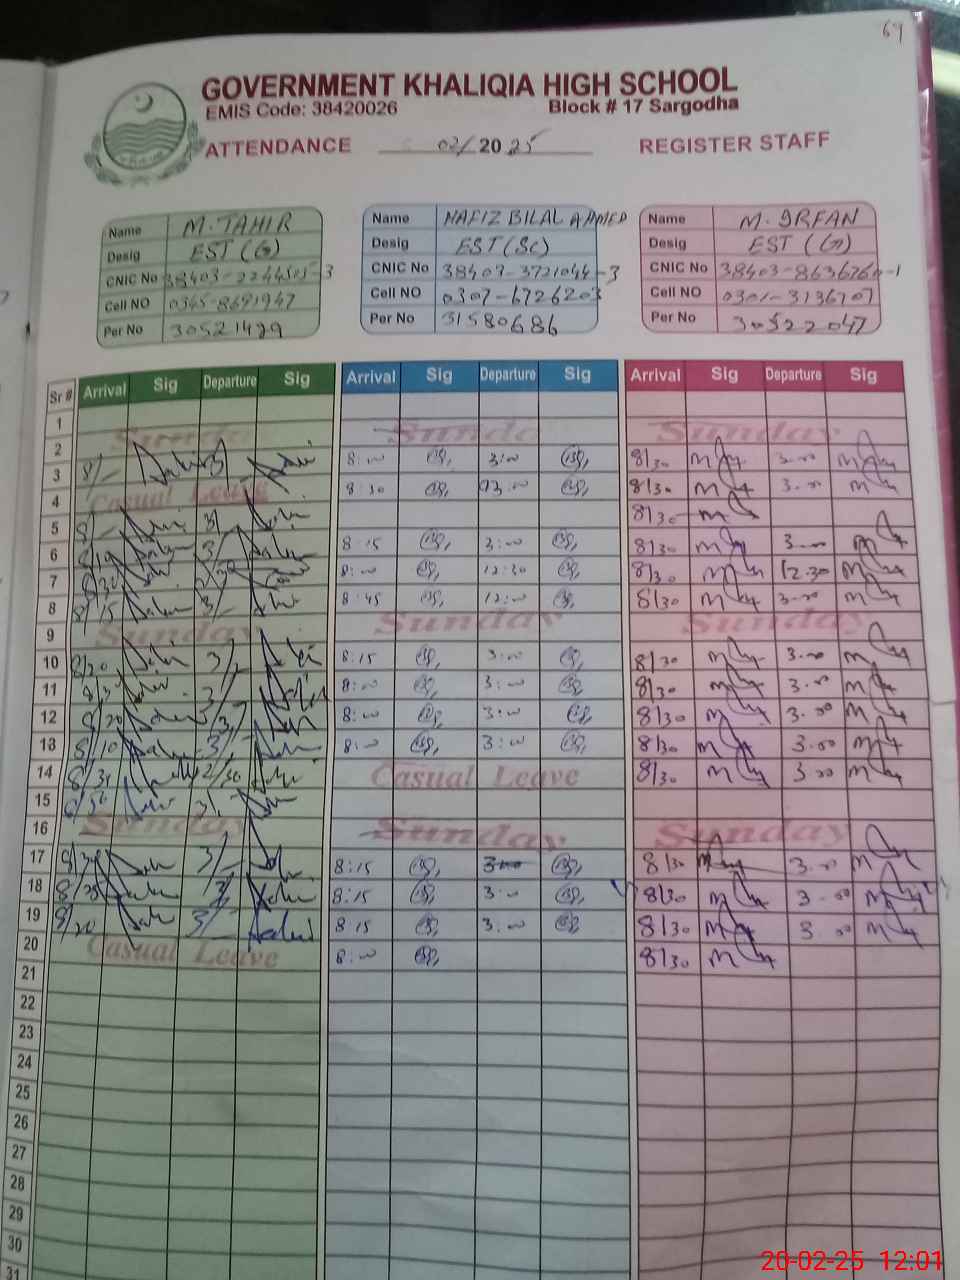 69
GOVERNMENT KHALIQIA HIGH SCHOOL
EMIS Code: 38420026 Block # 17 Sargodha
ATTENDANCE 02/2025 REGISTER STAFF
Name M. TAHIR
Desig EST (G)
CNIC No
Cell NO 0345-8691947
Per No 30521429
Name HAFIZ BILAL AHMED
Desig EST (Sc)
CNIC No 38403-3721044-3
Cell NO 0307-6726203
Per No 31580686
Name M. IRFAN
Desig EST (G)
CNIC No 38403-8636760-1
Cell NO 0301-3136707
Per No 30522047
Sr # Arrival Sig Departure Sig Arrival Sig Departure Sig Arrival Sig Departure Sig
1
2 Sunday Sunday Sunday
3 8/- 3 8:00 3:00 8/30 3.00
4 Casual Leave 8:30 03:00 8/30 3.00
5 8/- 3/ 8/30
6 3/ 8:15 3:00 8/30 3.00
7 8:00 12:30 8/30 12.30
8 8/15 3/ 8:45 12:00 8/30 3.00
9 Sunday Sunday Sunday
10 8/20 3/- 8:15 3:00 8/30 3.00
11 8:00 3:00 8/30 3.00
12 8/20 3/- 8:00 3:00 8/30 3.00
13 8/10 3/ 8:00 3:00 8/30 3.00
14 2/30 Casual Leave 8/30 3.00
15 3/.
16 Sunday Sunday Sunday
17 3/- 8:15 3:00 8/30 3.00
18 8:15 3:00 8/30 3.00
19 8/20 3/ 8:15 3:00 8/30 3.00
20 Casual Leave 8:00 8/30
21
22
23
24
25
26
27
28
29
30
31
20-02-25 12:01